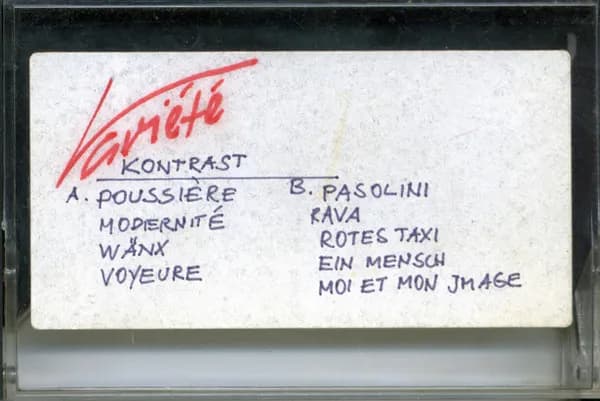 Variété
KONTRAST
A. POUSSIÈRE
MODERNITÉ
WÄNX
VOYEURE
B. PASOLINI
RAVA
ROTES TAXI
EIN MENSCH
MOI ET MON JMAGE